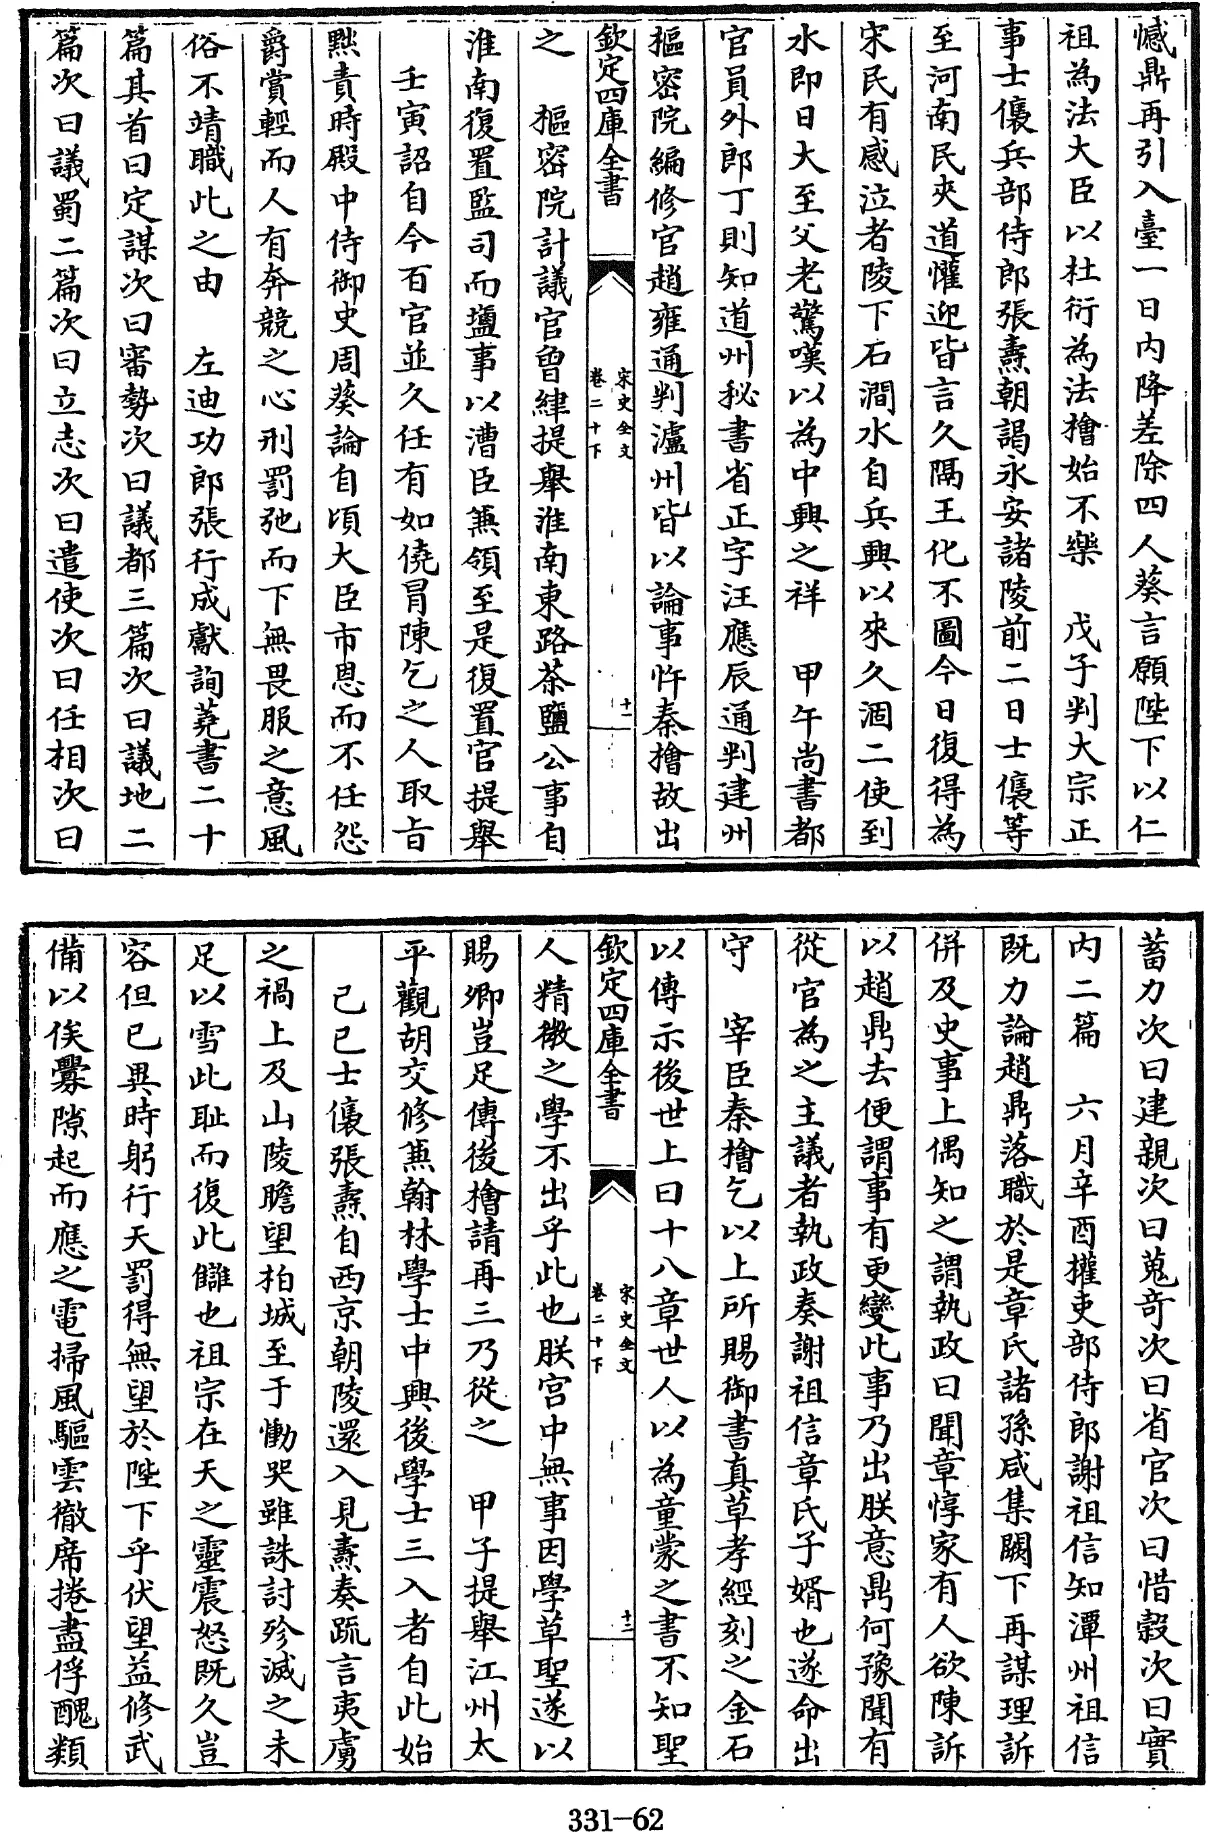 憾鼎再引入臺一日内降差除四人葵言願陛下以仁
祖為法大臣以杜衍為法檜始不樂　戊子判大宗正
事士㒟兵部侍郎張燾朝謁永安諸陵前二日士㒟等
至河南民夾道懽迎皆言久隔王化不圖今日復得為
宋民有感泣者陵下石澗水自兵興以來久涸二使到
水即日大至父老驚嘆以為中興之祥　甲午尚書都
官員外郎丁則知道州秘書省正字汪應辰通判建州
樞密院編修官趙雍通判瀘州皆以論事忤秦檜故出
欽定四庫全書
宋史全文
卷二十下
十一
之　樞密院計議官曾緯提舉淮南東路茶鹽公事自
淮南復置監司而鹽事以漕臣兼領至是復置官提舉
壬寅詔自今百官並久任有如僥冒陳乞之人取旨
黜責時殿中侍御史周葵論自頃大臣市恩而不任怨
爵賞輕而人有奔競之心刑罰弛而下無畏服之意風
俗不靖職此之由　左迪功郎張行成獻詢蕘書二十
篇其首曰定謀次曰審勢次曰議都三篇次曰議地二
篇次曰議蜀二篇次曰立志次曰遣使次曰任相次曰
蓄力次曰建親次曰蒐竒次曰省官次曰惜穀次曰實
内二篇　六月辛酉權吏部侍郎謝祖信知潭州祖信
既力論趙鼎落職於是章氏諸孫咸集闕下再謀理訴
併及史事上偶知之謂執政曰聞章惇家有人欲陳訴
以趙鼎去便謂事有更變此事乃出朕意鼎何豫聞有
從官為之主議者執政奏謝祖信章氏子婿也遂命出
守　宰臣秦檜乞以上所賜御書真草孝經刻之金石
以傳示後世上曰十八章世人以為童蒙之書不知聖
欽定四庫全書
宋史全文
卷二十下
十二
人精微之學不出乎此也朕宮中無事因學草聖遂以
賜卿豈足傳後檜請再三乃從之　甲子提舉江州太
平觀胡交修兼翰林學士中興後學士三入者自此始
己巳士㒟張燾自西京朝陵還入見燾奏疏言夷虜
之禍上及山陵瞻望柏城至于慟哭雖誅討殄滅之未
足以雪此耻而復此讎也祖宗在天之靈震怒既久豈
容但已異時躬行天罰得無望於陛下乎伏望益修武
備以俟釁隙起而應之電掃風驅雲徹席捲盡俘醜類
331-62